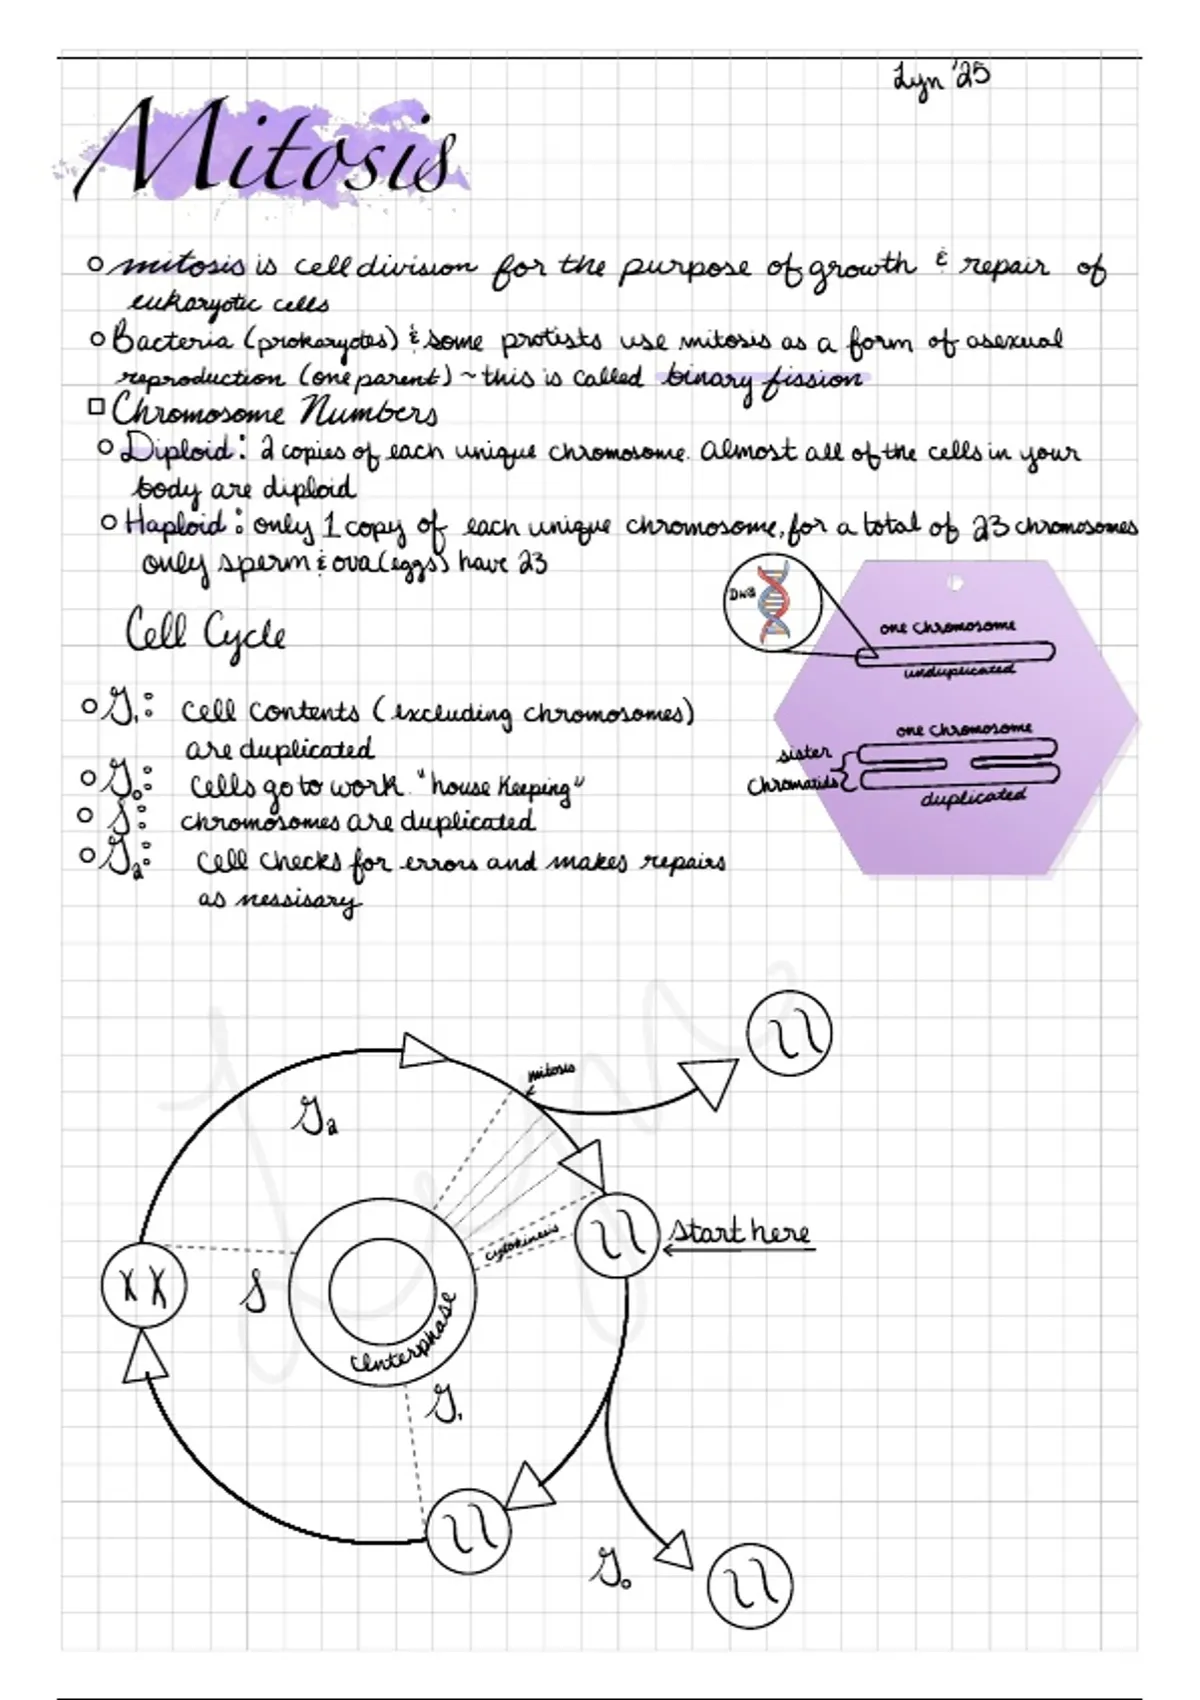 Lyn '25
Mitosis
mitosis is cell division for the purpose of growth & repair of
eukaryotic cells
Bacteria (prokaryotes) & some protists use mitosis as a form of asexual
reproduction (one parent) ~ this is called binary fission
Chromosome Numbers
Diploid: 2 copies of each unique chromosome. Almost all of the cells in your
body are diploid
Haploid: only 1 copy of each unique chromosome, for a total of 23 chromosomes
only sperm & ova (eggs) have 23
DNA
one chromosome
unduplicated
Cell Cycle
one chromosome
sister
chromatids
duplicated
G₁: cell contents (excluding chromosomes)
are duplicated
G₀: cells go to work. "house keeping"
S: chromosomes are duplicated
G₂: cell checks for errors and makes repairs
as nessisary
Lyn
mitosis
G₂
cytokinesis
start here
S
Interphase
G₁
G₀